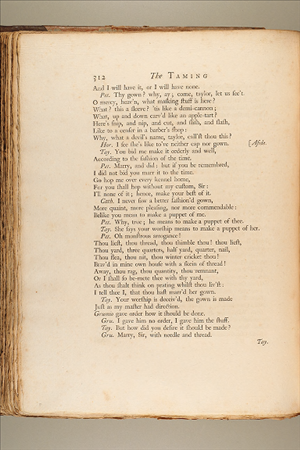 312 The TAMING
And I will have it, or I will have none.
Pet. Thy gown? why, ay; come, taylor, let us see't
O mercy, heav'n, what masking stuff is here?
What? this a sleeve? 'tis like a demi-cannon;
What, up and down carv'd like an apple-tart?
Here's snip, and nip, and cut, and slish, and slash,
Like to a censer in a barber's shop:
Why, what a devil's name, taylor, call'st thou this?
Hor. I see she's like to've neither cap nor gown. [Aside.
Tay. You bid me make it orderly and well,
According to the fashion of the time.
Pet. Marry, and did: but if you be remembred,
I did not bid you marr it to the time.
Go hop me over every kennel home,
For you shall hop without my custom, Sir:
I'll none of it; hence, make your best of it.
Cath. I never saw a better fashion'd gown,
More quaint, more pleasing, nor more commendable:
Belike you mean to make a puppet of me.
Pet. Why, true; he means to make a puppet of thee.
Tay. She says your worship means to make a puppet of her.
Pet. Oh monstrous arrogance!
Thou liest, thou thread, thou thimble, thou! thou liest,
Thou yard, three quarters, half yard, quarter, nail,
Thou flea, thou nit, thou winter cricket thou!
Brav'd in mine own house with a skein of thread!
Away, thou rag, thou quantity, thou remnant,
Or I shall so be-mete thee with thy yard,
As thou shalt think on prating whilst thou liv'st:
I tell thee I, that thou hast marr'd her gown.
Tay. Your worship is deceiv'd, the gown is made
Just as my master had direction.
Grumio gave order how it should be done.
Gru. I gave him no order, I gave him the stuff.
Tay. But how did you desire it should be made?
Gru. Marry, Sir, with needle and thread.
Tay.